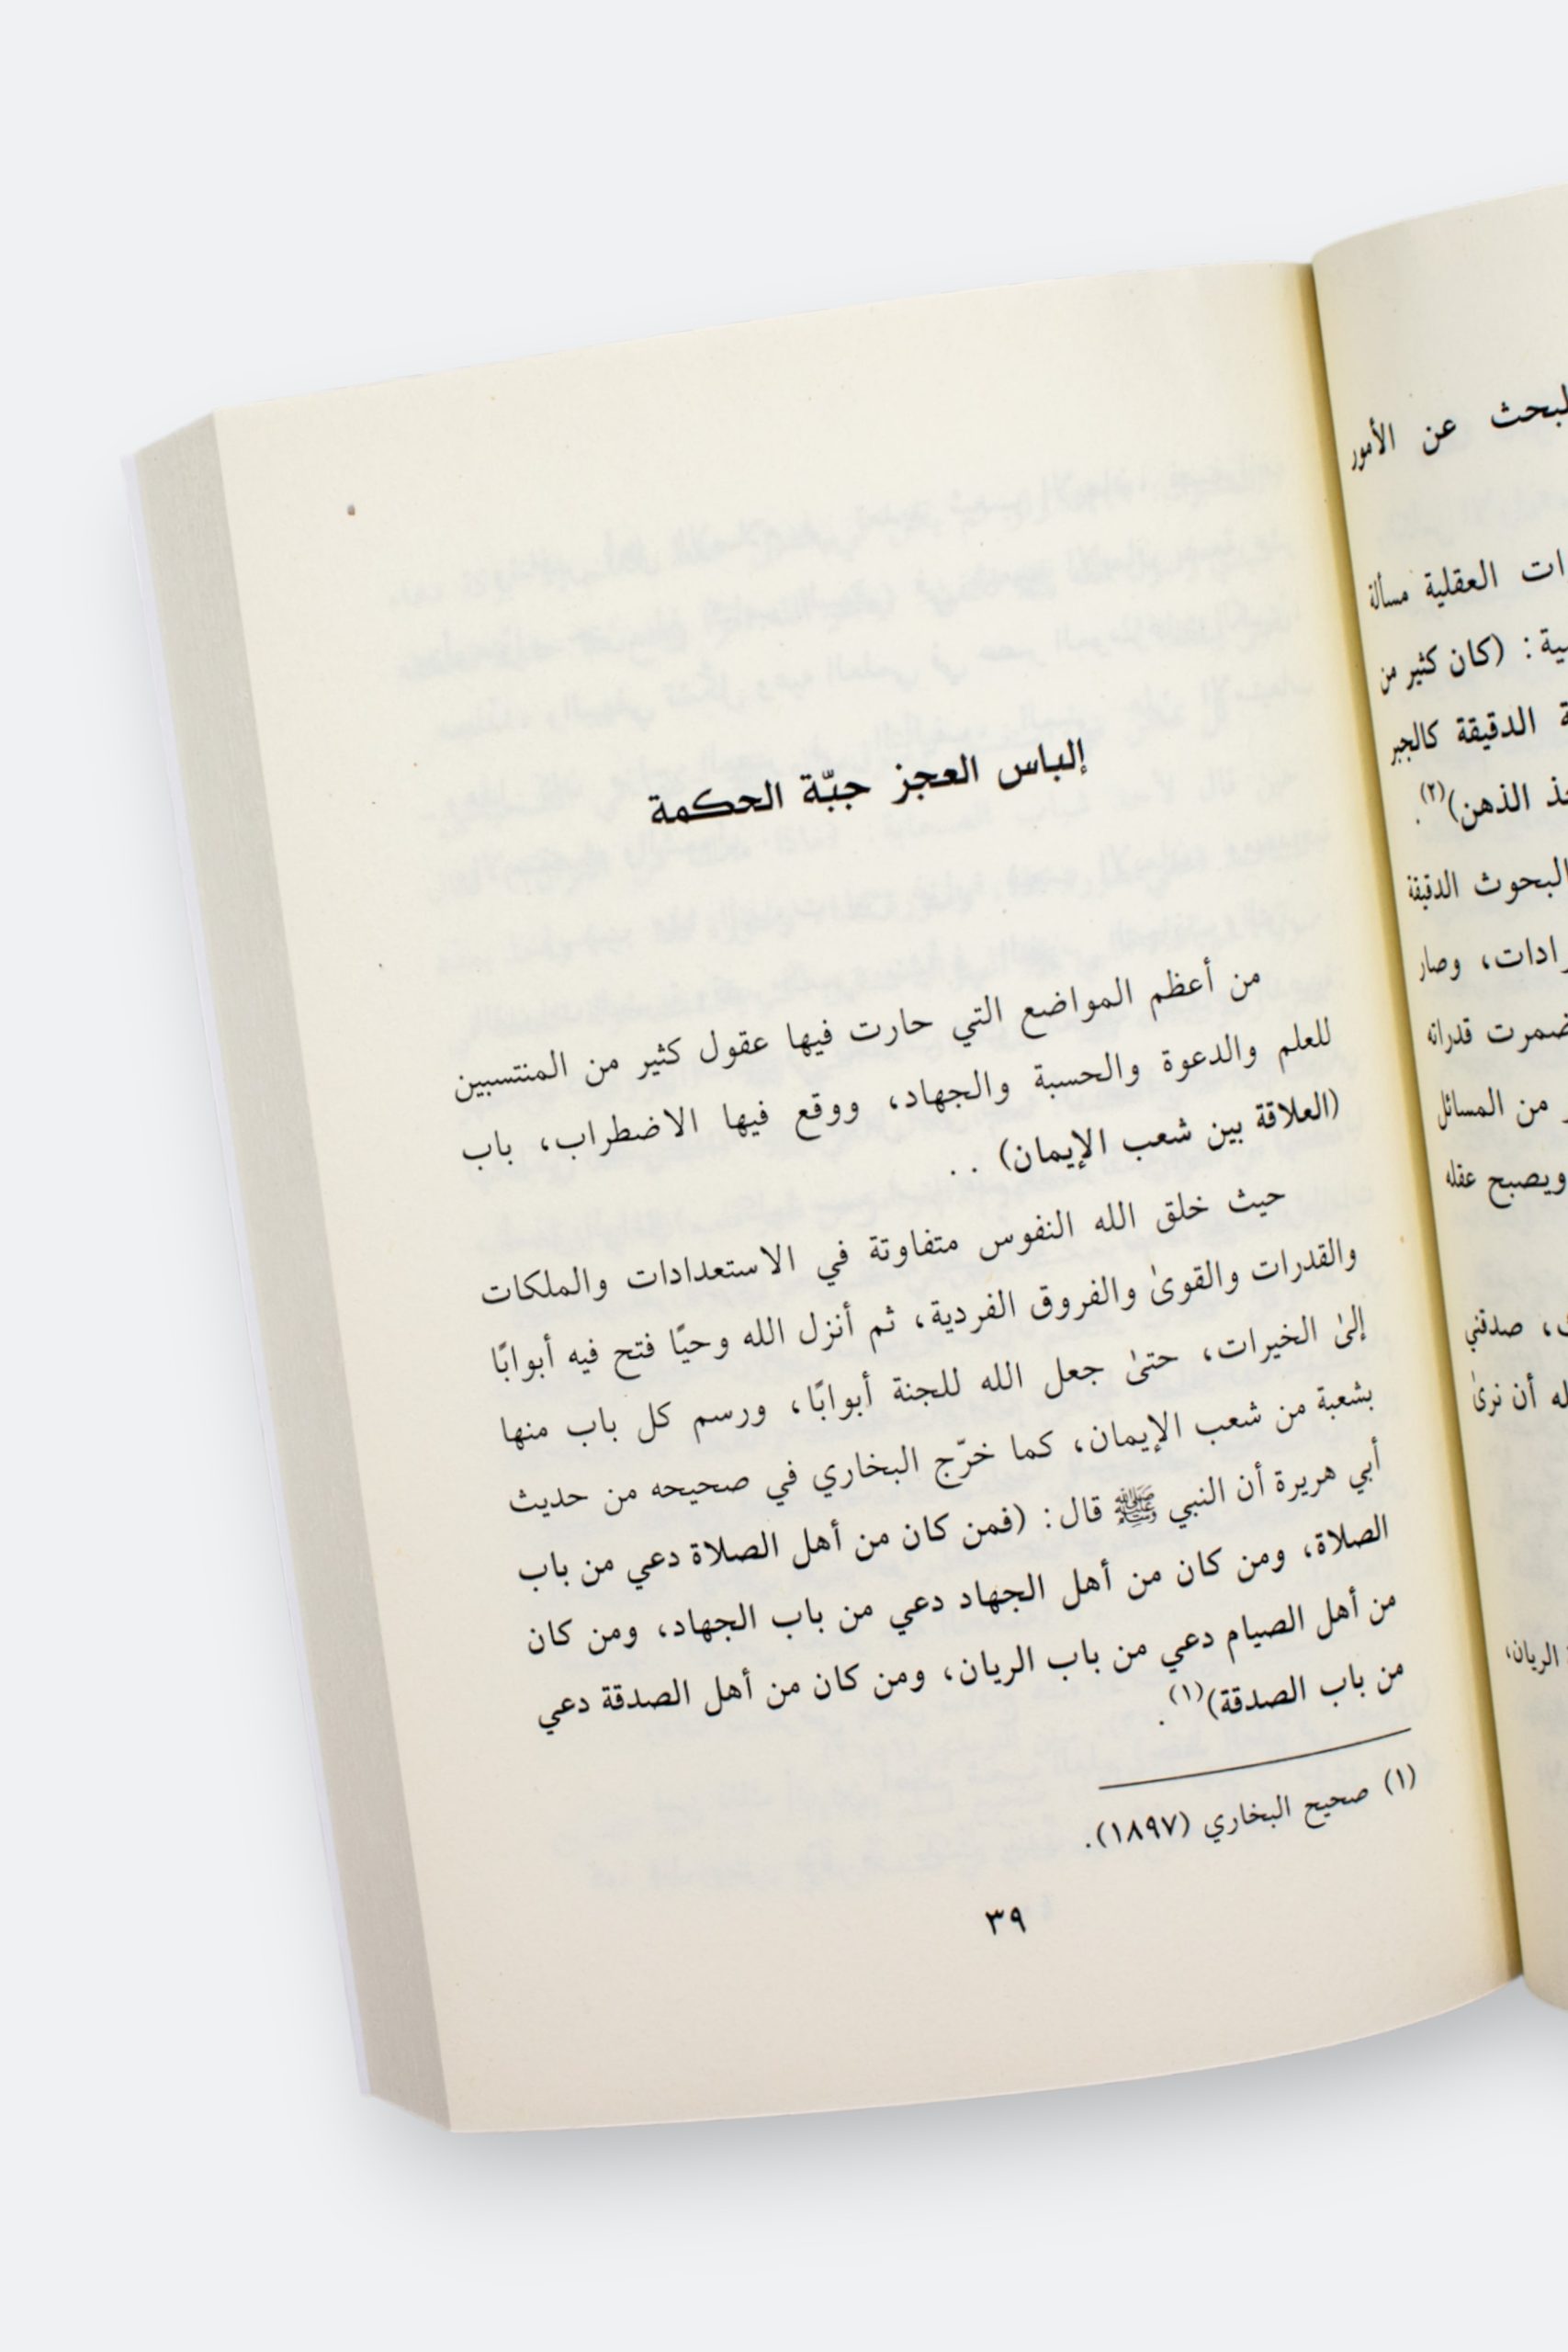 لبحث عن الأمور
ات العقلية مسألة
ية: (كان كثير من
ة الدقيقة كالجبر
ذ الذهن)(٢).
البحوث الدقيقة
رادات، وصار
ضمرت قدراته
ر من المسائل
ويصبح عقله
، صدقني
له أن نرىٰ
الريان،
إلباس العجز جبّة الحكمة
من أعظم المواضع التي حارت فيها عقول كثير من المنتسبين
للعلم والدعوة والحسبة والجهاد، ووقع فيها الاضطراب، باب
(العلاقة بين شعب الإيمان) . .
حيث خلق الله النفوس متفاوتة في الاستعدادات والملكات
والقدرات والقوىٰ والفروق الفردية، ثم أنزل الله وحيًا فتح فيه أبوابًا
إلىٰ الخيرات، حتىٰ جعل الله للجنة أبوابًا، ورسم كل باب منها
بشعبة من شعب الإيمان، كما خرّج البخاري في صحيحه من حديث
أبي هريرة أن النبي ﷺ قال: (فمن كان من أهل الصلاة دعي من باب
الصلاة، ومن كان من أهل الجهاد دعي من باب الجهاد، ومن كان
من أهل الصيام دعي من باب الريان، ومن كان من أهل الصدقة دعي
من باب الصدقة)(١).
(١) صحيح البخاري (١٨٩٧).
٣٩